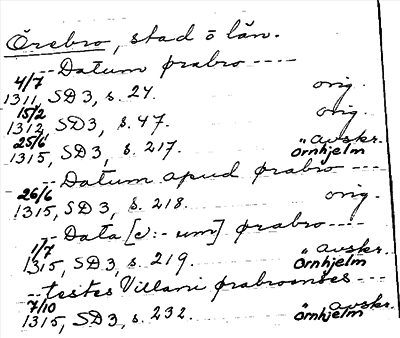 Örebro, stad o län.
-- Datum ørabro ----
4/7
1311, SD 3, s. 27. orig.
15/2
1312, SD 3, s. 47. orig.
25/6 " avskr.
1315, SD 3, s. 217. Örnhjelm
-- Datum apud ørabro --
26/6
1315, SD 3, s. 218. orig.
-- Data [ɔ: - um] ørabro ---
1/7 " avskr.
1315, SD 3, s. 219. Örnhjelm
-- testes Villani ørabroenses ---
7/10 " avskr.
1315, SD 3, s. 232. Örnhjelm